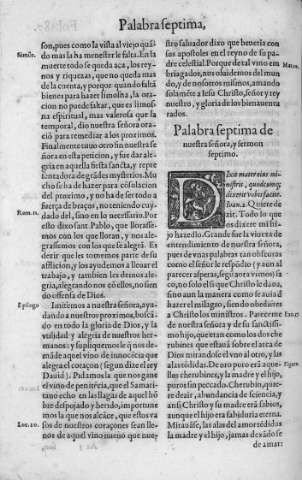 Palabra septima,
son, pues como la vista al viejo quá
Simóo.
do mas la ha menester le falta. En la
muerte todo se queda aca, los rey-
nos y riquezas, que no queda mas
de la cuenta, y porque quando falta
bienes para hazer limosna, la oraci
on no puede faltar, que es limos-
na espiritual, mas valerosa que la
temporal, dio nuestra señora ora-
ciõ para remediar a los proximos.
Finalmente uuo otro fin nuestra se
ñora en esta peticion, y fue dar ale-
gria en aquella fiesta sancta, y repre
sentadora de grãdes mysterios. Mu
cho se ha de hazer para cõsolacion
del proximo, y no ha de ser todo a
fuerça de braços, no teniendo cuy-
dado del, sino en lo necessario. Por
Rom. 12.
esto dixo sant Pablo, que llorasse-
mos con los que lloran, y nos ale-
grassemos con los que se alegrã. Es
dezir que les tornemos parte de su
afliction, y los ayudemos a lleuar el
trabajo, y tambien les demos ale-
gria, alegrando nos cõ ellos, no sien
do offensa de Dios.
Epilogo
Imitemos a nuestra señora, ayu-
dando a nuestros proximos, buscã-
do en todo la gloria de Dios, y la
vtilidad y alegria de nuestros her-
manos: y supliquemosle q̃ nos de-
mãde aquel vino de innocẽcia que
alegra el coraçon (segun dize el rey
Dauid). Pidamosla que nos gane
el vino de penitẽcia, que el Samari
tano echo en las llagas de aquel hõ
bre despojado y herido, importune
mos la que nos alcãce, que estos va
sos de nuestros coraçones sean lle-
Luc. 10.
nos de aquel vino nueuo que nues
tro saluador dixo que beueria con
sus apostoles en el reyno de su pa-
dre celestial. Porque de tal vino em
Matth.
briagados, nos oluidemos del mun
do, y de nosotros mismos, amando
solamẽte a Iesu Christo, señor y rey
nuestro, y gloria de los bienauentu
rados.
Palabra septima de
nuestra señora, y sermon
septimo.
Dicit mater eius mi-
nistris, quodcunq;
dixerit vobis facite.
Ioan. 2. Quiere de-
zir. Todo lo que
os dixere mi hi-
jo hazedlo. Grande fue la viueza de
entendimiento de nuestra señora,
pues de vnas palabras tan obscuras
como el señor le respõdio (y aun al
parecer asperas, segũ aora vimos) sa
co, no solo el si que Christo le daua,
sino aun la manera como se auia de
hazer el milagro, siendo obedientes
a Christo los ministros. Pareceme
de nuestra señora y de su sanctissi-
mo hijo, que eran como los dos che
rubines que estauã sobre el arca de
Dios mirandose el vno al otro, y las
alas tẽdidas. De oro puro erã aque-
Figur.
llos cherubines, y la madre y el hijo,
puros sin peccado. Cherubin, quie-
re dezir, abundancia de sciencia, y
ansi Christo y su madre erã sabios,
aunque el hijo era sabiduria eterna.
Mirauãse, las alas del amor tẽdidas
la madre y el hijo, jamas dexãdose
de amar: